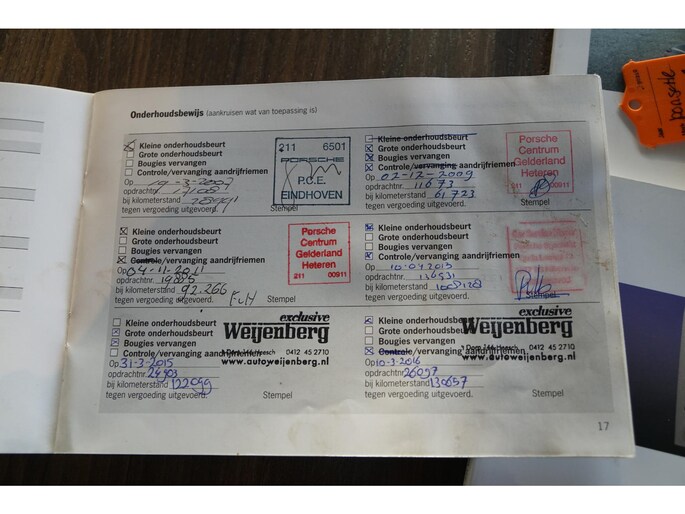 Onderhoudsbewijs (aankruisen wat van toepassing is)
Kleine onderhoudsbeurt
Grote onderhoudsbeurt
Bougies vervangen
Controle/vervanging aandrijfriemen
Op 19-3-2007
opdrachtnr.
bij kilometerstand
tegen vergoeding uitgevoerd.
Stempel
211 6501
PORSCHE
P.C.E.
EINDHOVEN
Kleine onderhoudsbeurt
Grote onderhoudsbeurt
Bougies vervangen
Controle/vervanging aandrijfriemen
Op 02-12-2009
opdrachtnr. 11673
bij kilometerstand 61723
tegen vergoeding uitgevoerd.
Stempel
Porsche
Centrum
Gelderland
Heteren
211 00911
Kleine onderhoudsbeurt
Grote onderhoudsbeurt
Bougies vervangen
Controle/vervanging aandrijfriemen
Op 04-11-2011
opdrachtnr.
bij kilometerstand 92.266
tegen vergoeding uitgevoerd.
Stempel
Porsche
Centrum
Gelderland
Heteren
211 00911
Kleine onderhoudsbeurt
Grote onderhoudsbeurt
Bougies vervangen
Controle/vervanging aandrijfriemen
Op 10-04-2013
opdrachtnr.
bij kilometerstand
tegen vergoeding uitgevoerd.
Stempel
Kleine onderhoudsbeurt
Grote onderhoudsbeurt
Bougies vervangen
Controle/vervanging aandrijfriemen
Op 31-3-2015
opdrachtnr. 24903
bij kilometerstand 122099
tegen vergoeding uitgevoerd.
Stempel
exclusive
Weijenberg
0412 45 2710
www.autoweijenberg.nl
Kleine onderhoudsbeurt
Grote onderhoudsbeurt
Bougies vervangen
Controle/vervanging aandrijfriemen
Op 10-3-2016
opdrachtnr. 26097
bij kilometerstand 130657
tegen vergoeding uitgevoerd.
Stempel
exclusive
Weijenberg
0412 45 2710
www.autoweijenberg.nl
17